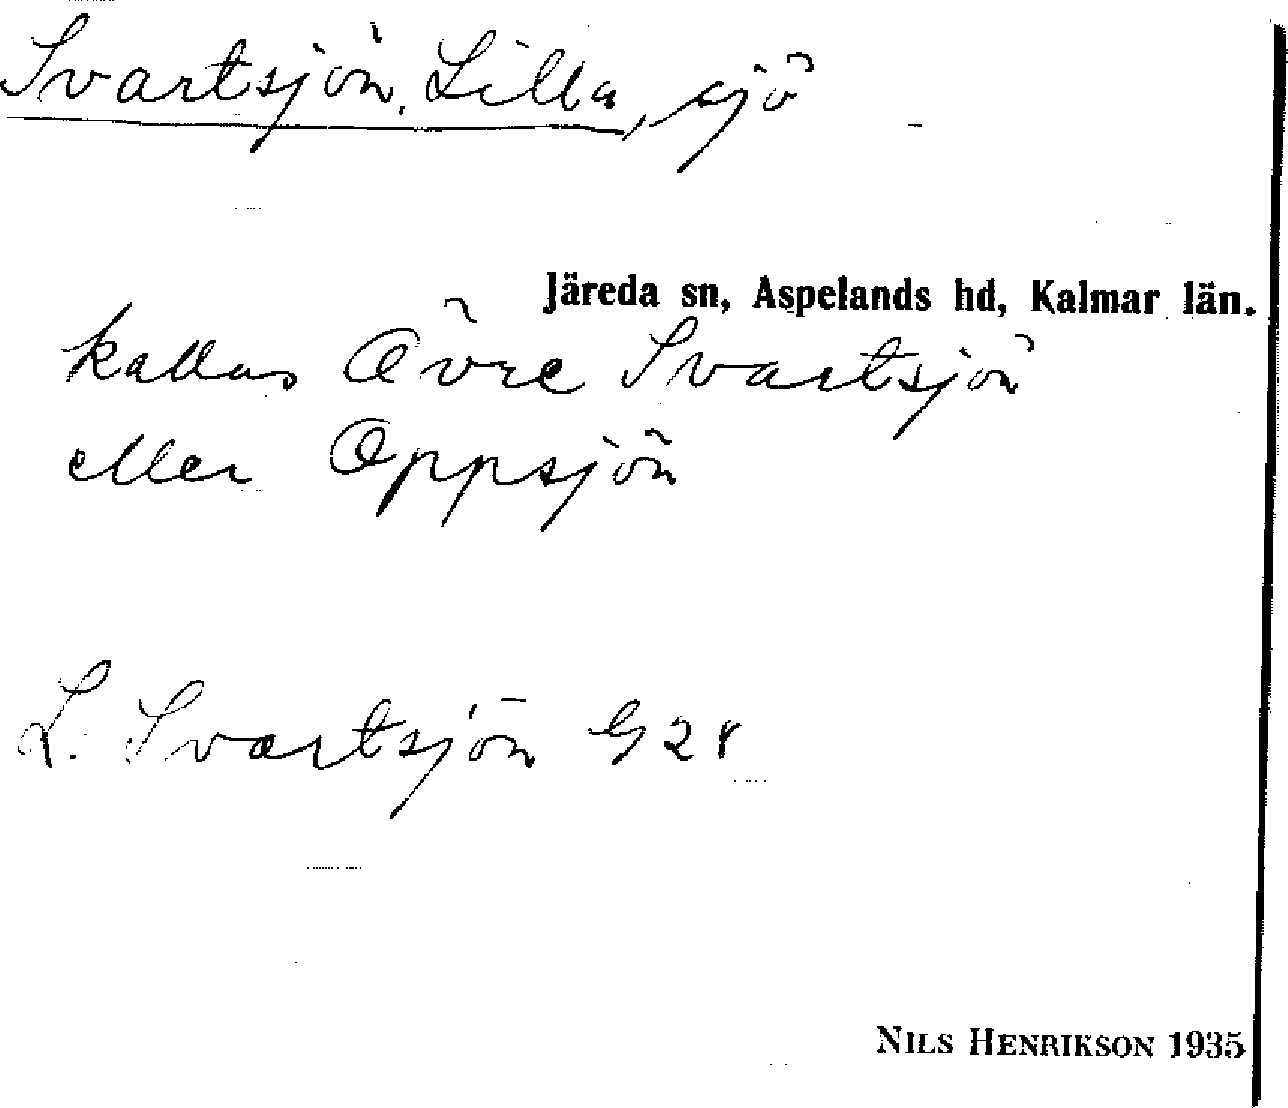 Svartsjön, Lilla, sjö
Järeda sn, Aspelands hd, Kalmar län.
kallas Övre Svartsjön
eller Oppsjön
L. Svartsjön G 28
NILS HENRIKSON 1935